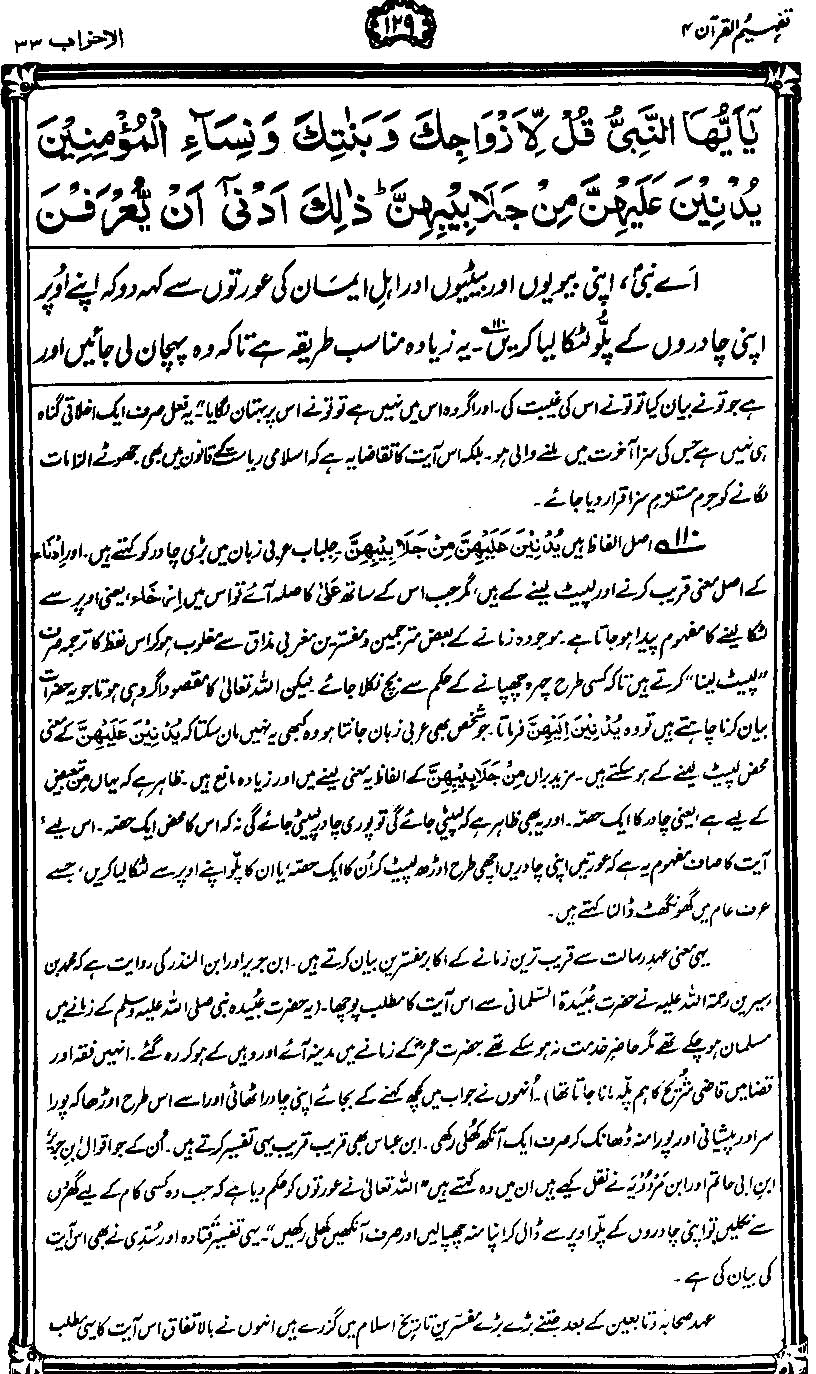 تفہیم القرآن ۴
۱۲۹
الاحزاب ۳۳
يٰۤاَيُّهَا النَّبِيُّ قُلْ لِّاَزْوَاجِكَ وَبَنٰتِكَ وَنِسَآءِ الْمُؤْمِنِيْنَ
يُدْنِيْنَ عَلَيْهِنَّ مِنْ جَلَابِيْبِهِنَّ ؕ ذٰلِكَ اَدْنٰۤى اَنْ يُّعْرَفْنَ
اَے نبیؐ، اپنی بیویوں اور بیٹیوں اور اہلِ ایمان کی عورتوں سے کہہ دو کہ اپنے اُوپر
اپنی چادروں کے پلُّو لٹکا لیا کریں۱۱۰؎۔ یہ زیادہ مناسب طریقہ ہے تاکہ وہ پہچان لی جائیں اور
ہے جو تو نے بیان کیا تو تو نے اس کی غیبت کی۔ اور اگر وہ اس میں نہیں ہے تو تو نے اس پر بہتان لگایا“ یہ فعل صرف ایک اخلاقی گناہ
ہی نہیں ہے جس کی سزا آخرت میں ملنے والی ہو۔ بلکہ اس آیت کا تقاضا یہ ہے کہ اسلامی ریاست کے قانون میں بھی جھوٹے الزامات
لگانے کو جرم مستلزمِ سزا قرار دیا جائے۔
۱۱۰؎ اصل الفاظ ہیں يُدْنِيْنَ عَلَيْهِنَّ مِنْ جَلَابِيْبِهِنَّ جلباب عربی زبان میں بڑی چادر کو کہتے ہیں۔ اور اِدْنَاء
کے اصل معنی قریب کرنے اور لپیٹ لینے کے ہیں، مگر جب اس کے ساتھ عَلیٰ کا صلہ آئے تو اس میں اِرخَاء، یعنی اوپر سے
لٹکا لینے کا مفہوم پیدا ہو جاتا ہے۔ موجودہ زمانے کے بعض مترجمین و مفسّرین مغربی مذاق سے مغلوب ہو کر اس لفظ کا ترجمہ صرف
”لپیٹ لینا“ کرتے ہیں تاکہ کسی طرح چہرہ چھپانے کے حکم سے بچ نکلا جائے۔ لیکن اللہ تعالیٰ کا مقصود اگر وہی ہوتا جو یہ حضرات
بیان کرنا چاہتے ہیں تو وہ يُدْنِيْنَ اِلَيْهِنَّ فرماتا۔ جو شخص بھی عربی زبان جانتا ہو وہ کبھی یہ نہیں مان سکتا کہ يُدْنِيْنَ عَلَيْهِنَّ کے معنی
محض لپیٹ لینے کے ہو سکتے ہیں۔ مزید براں مِنْ جَلَابِيْبِهِنَّ کے الفاظ یہ معنی لینے میں اور زیادہ مانع ہیں۔ ظاہر ہے کہ یہاں مِنْ تبعیض
کے لیے ہے، یعنی چادر کا ایک حصّہ۔ اور یہ بھی ظاہر ہے کہ لپیٹی جائے گی تو پوری چادر لپیٹی جائے گی نہ کہ اس کا محض ایک حصّہ۔ اس لیے
آیت کا صاف مفہوم یہ ہے کہ عورتیں اپنی چادریں اچھی طرح اوڑھ لپیٹ کر اُن کا ایک حصّہ، یا ان کا پلّو اپنے اوپر سے لٹکا لیا کریں، جسے
عرفِ عام میں گھونگھٹ ڈالنا کہتے ہیں۔
یہی معنی عہدِ رسالت سے قریب ترین زمانے کے اکابر مفسّرین بیان کرتے ہیں۔ ابن جریر اور ابن المنذر کی روایت ہے کہ محمد بن
سیرین رحمۃ اللہ علیہ نے حضرت عَبِیدَۃ السّلمانی سے اس آیت کا مطلب پوچھا۔ (یہ حضرت عَبِیدہ نبی صلی اللہ علیہ وسلم کے زمانے میں
مسلمان ہو چکے تھے مگر حاضرِ خدمت نہ ہو سکے تھے۔ حضرت عمرؓ کے زمانے میں مدینہ آئے اور وہیں کے ہو کر رہ گئے۔ انہیں فقہ اور
قضا میں قاضی شُرَیح کا ہم پلّہ مانا جاتا تھا)۔ اُنہوں نے جواب میں کچھ کہنے کے بجائے اپنی چادر اٹھائی اور اسے اس طرح اوڑھا کہ پورا
سر اور پیشانی اور پورا منہ ڈھانک کر صرف ایک آنکھ کھلی رکھی۔ ابن عباس بھی قریب قریب یہی تفسیر کرتے ہیں۔ اُن کے جو اقوال ابن جریر،
ابن ابی حاتم اور ابن مَرْدُوْیَہ نے نقل کیے ہیں ان میں وہ کہتے ہیں ”اللہ تعالیٰ نے عورتوں کو حکم دیا ہے کہ جب وہ کسی کام کے لیے گھروں
سے نکلیں تو اپنی چادروں کے پلّو اوپر سے ڈال کر اپنا منہ چھپا لیں اور صرف آنکھیں کھلی رکھیں“۔ یہی تفسیر قَتادہ اور سُدّی نے بھی اس آیت
کی بیان کی ہے۔
عہدِ صحابہ و تابعین کے بعد جتنے بڑے بڑے مفسّرین تاریخِ اسلام میں گزرے ہیں انہوں نے بالاتفاق اس آیت کا یہی مطلب